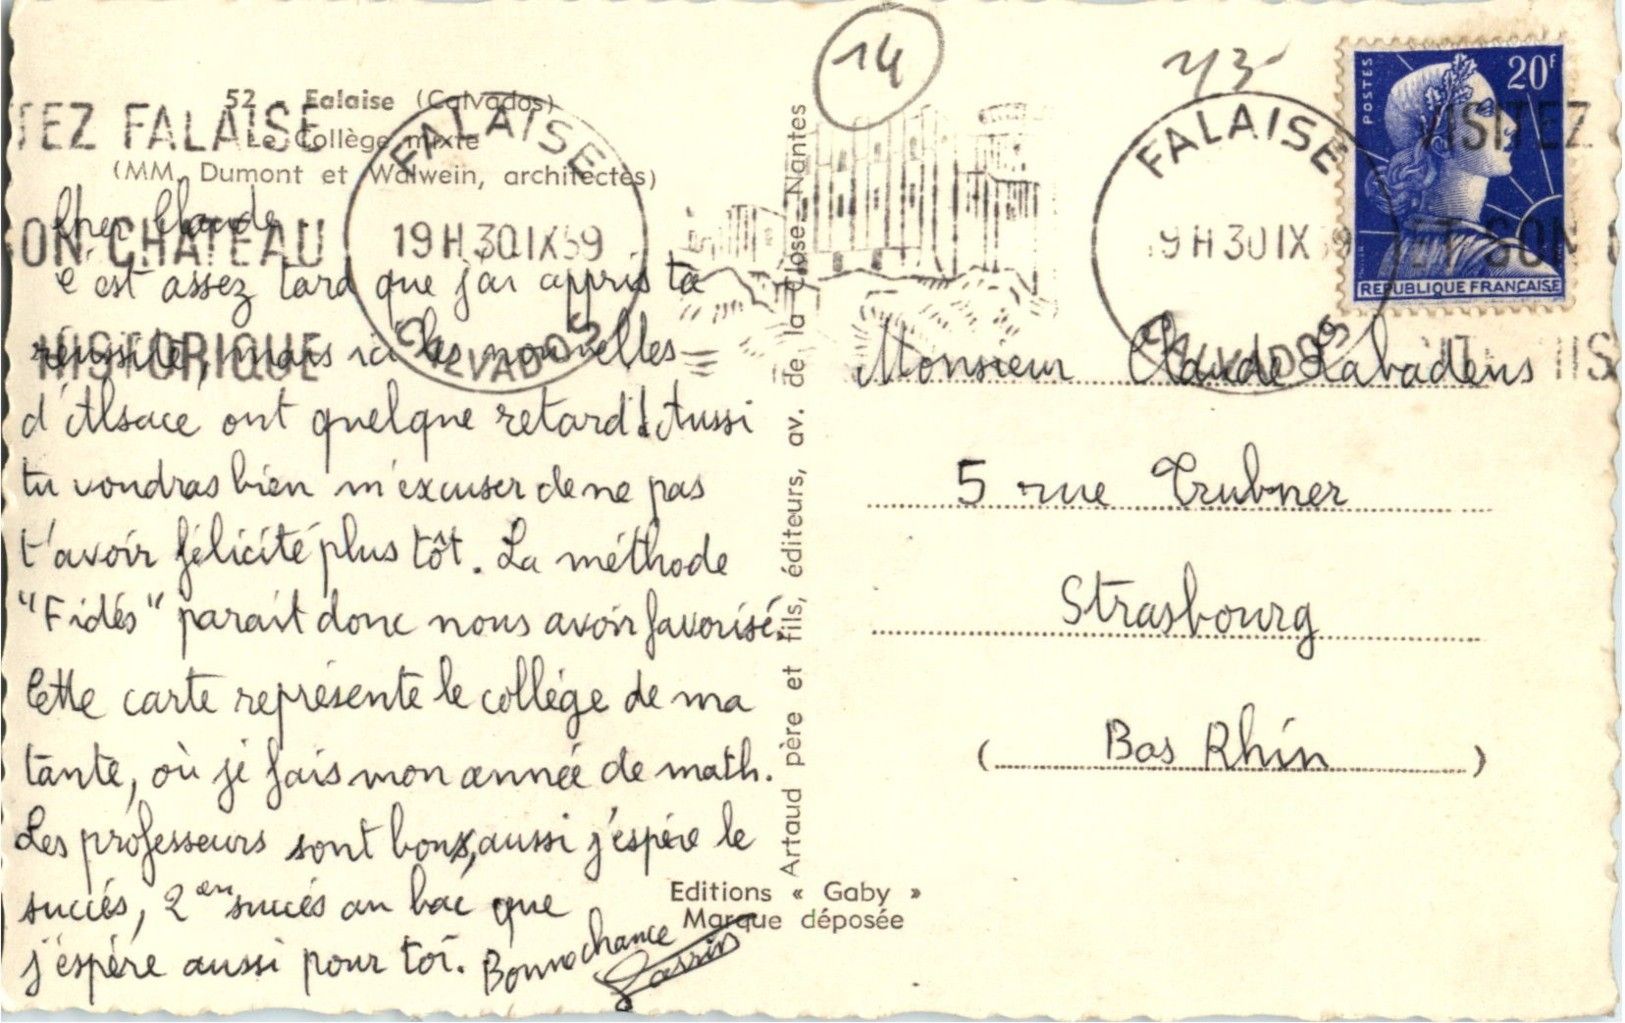 14
52 Falaise (Calvados)
Le Collège mixte
(MM. Dumont et Walwein, architectes)
TEZ FALAISE
ON CHATEAU
HISTORIQUE
FALAISE
19H 30 IX 59
CALVADOS
FALAISE
19H 30 IX 59
CALVADOS
VISITEZ
ET SON
POSTES
20F
REPUBLIQUE FRANÇAISE
Cher Claude
C'est assez tard que j'ai appris ta
réussite, mais ici les nouvelles
d'Alsace ont quelque retard! Aussi
tu voudras bien m'excuser de ne pas
t'avoir félicité plus tôt. La méthode
"Fidés" parait donc nous avoir favorisé.
Cette carte représente le collége de ma
tante, où je fais mon année de math.
Les professeurs sont bons, aussi j'espére le
succés, 2en succés au bac que
j'espére aussi pour toi. Bonne chance
Artaud père et fils, éditeurs, av. de la Close - Nantes
Editions « Gaby »
Marque déposée
Monsieur Claude Labadens
5 rue Trubner
Strasbourg
( Bas Rhin )